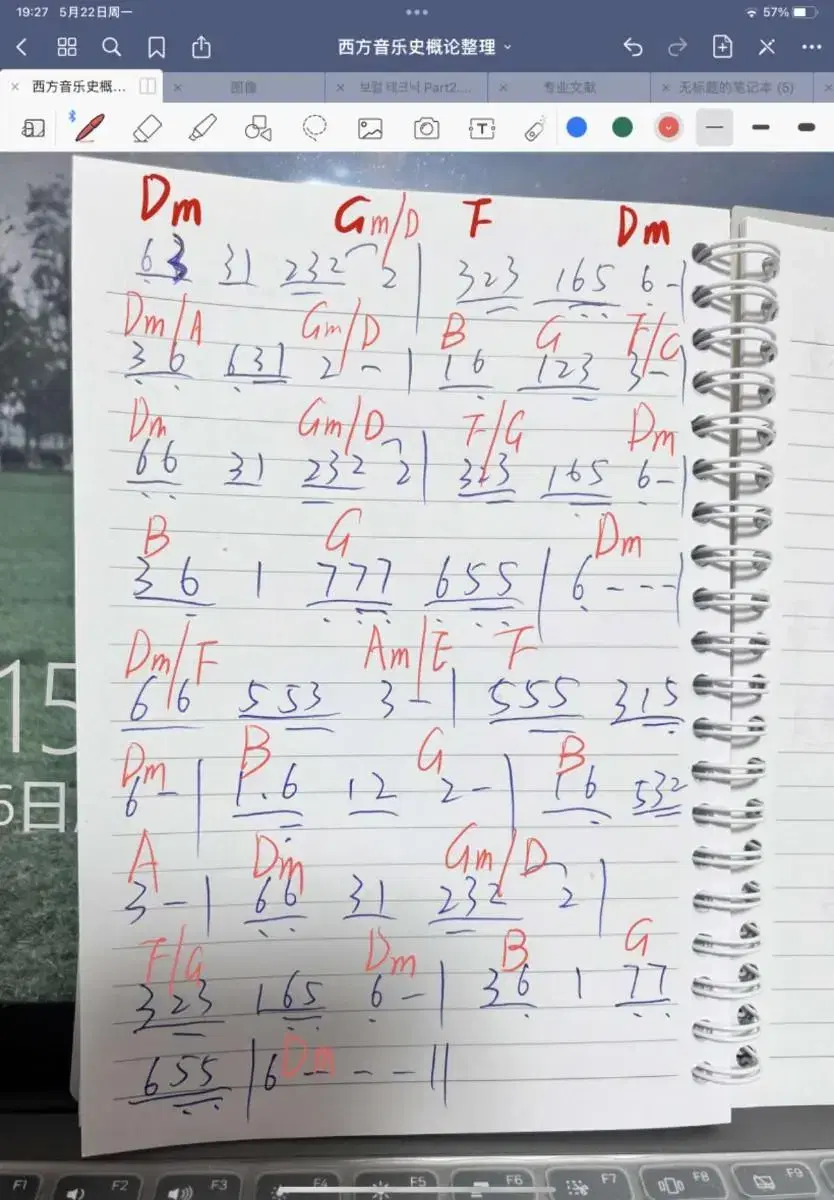 19:27 5月22日周一
57%
西方音乐史概论整理
西方音乐史概... 图像 보컬 테크닉 Part2.... 专业文献 无标题的笔记本 (5)
T
Dm Gm/D F Dm
63 31 232 2 | 323 165 6 - |
Dm/A Gm/D B G F/C
36 631 2 - | 16 123 3 - |
Dm Gm/D F/G Dm
66 31 232 2 | 323 165 6 - |
B G Dm
36 1 777 655 | 6 - - - |
Dm/F Am/E F
66 553 3 - | 555 315
Dm B G B
6 - | 1.6 12 2 - | 16 532
A Dm Gm/D
3 - | 66 31 232 2 |
F/G Dm B G
323 165 6 - | 36 1 77
Dm
655 | 6 - - - ||
15
6日
F1 F2 F3 F4 F5 F6 F7 F8 F9